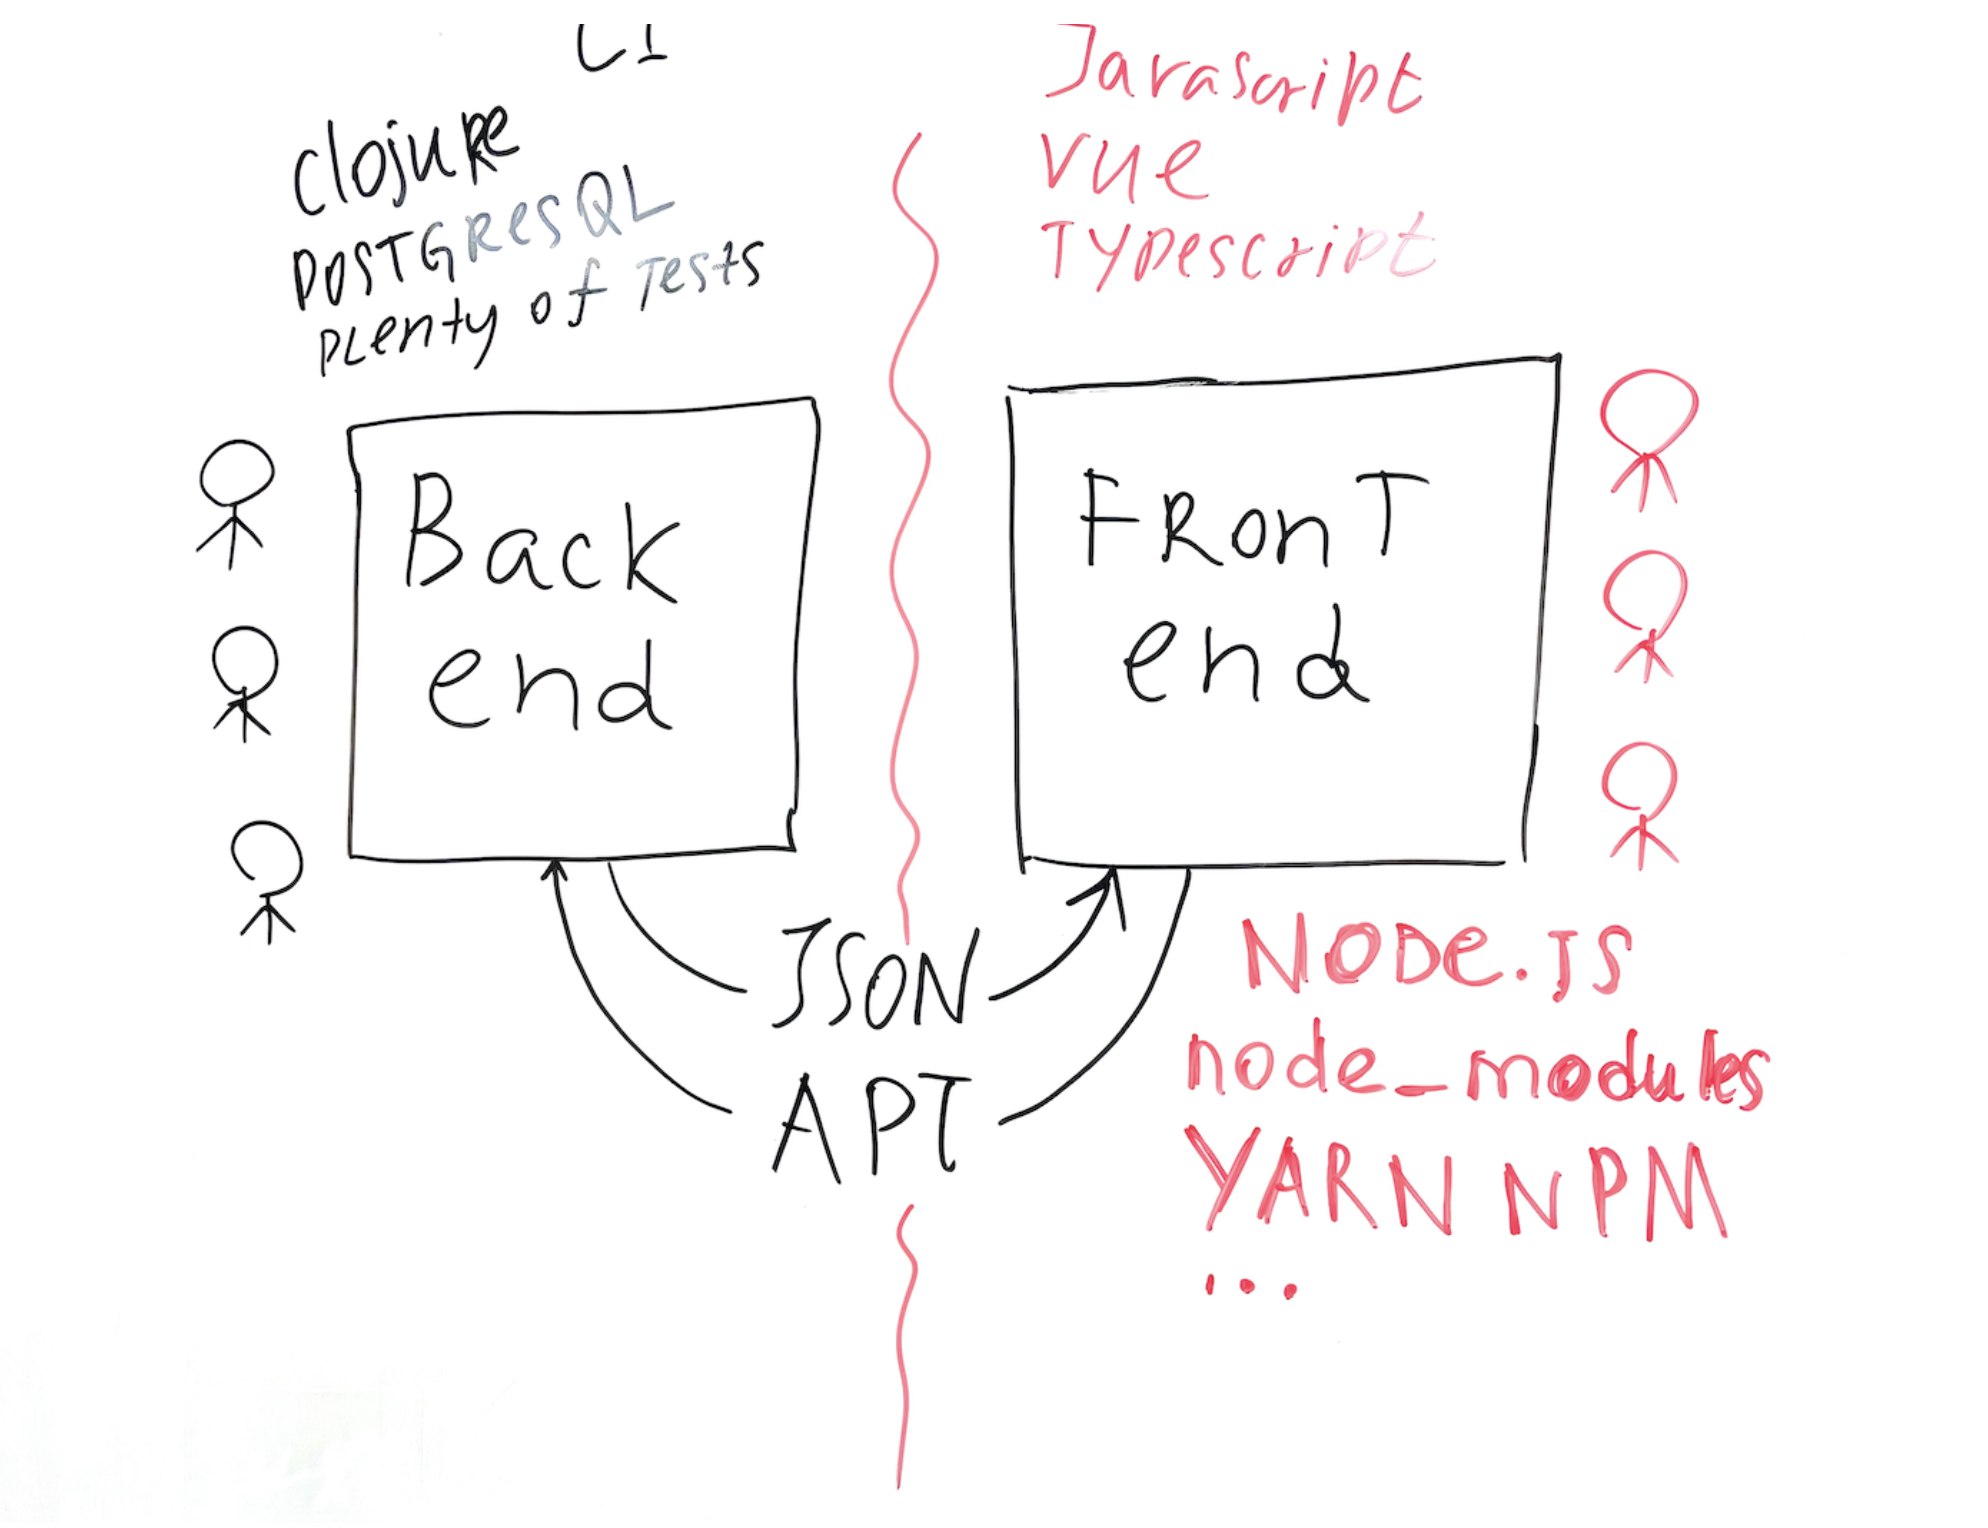 clojure
POSTGResQL
PLenty of Tests
Javascript
vue
Typescript
Back
end
FRonT
end
JSON
API
NODe.JS
node_modules
YARN NPM
...